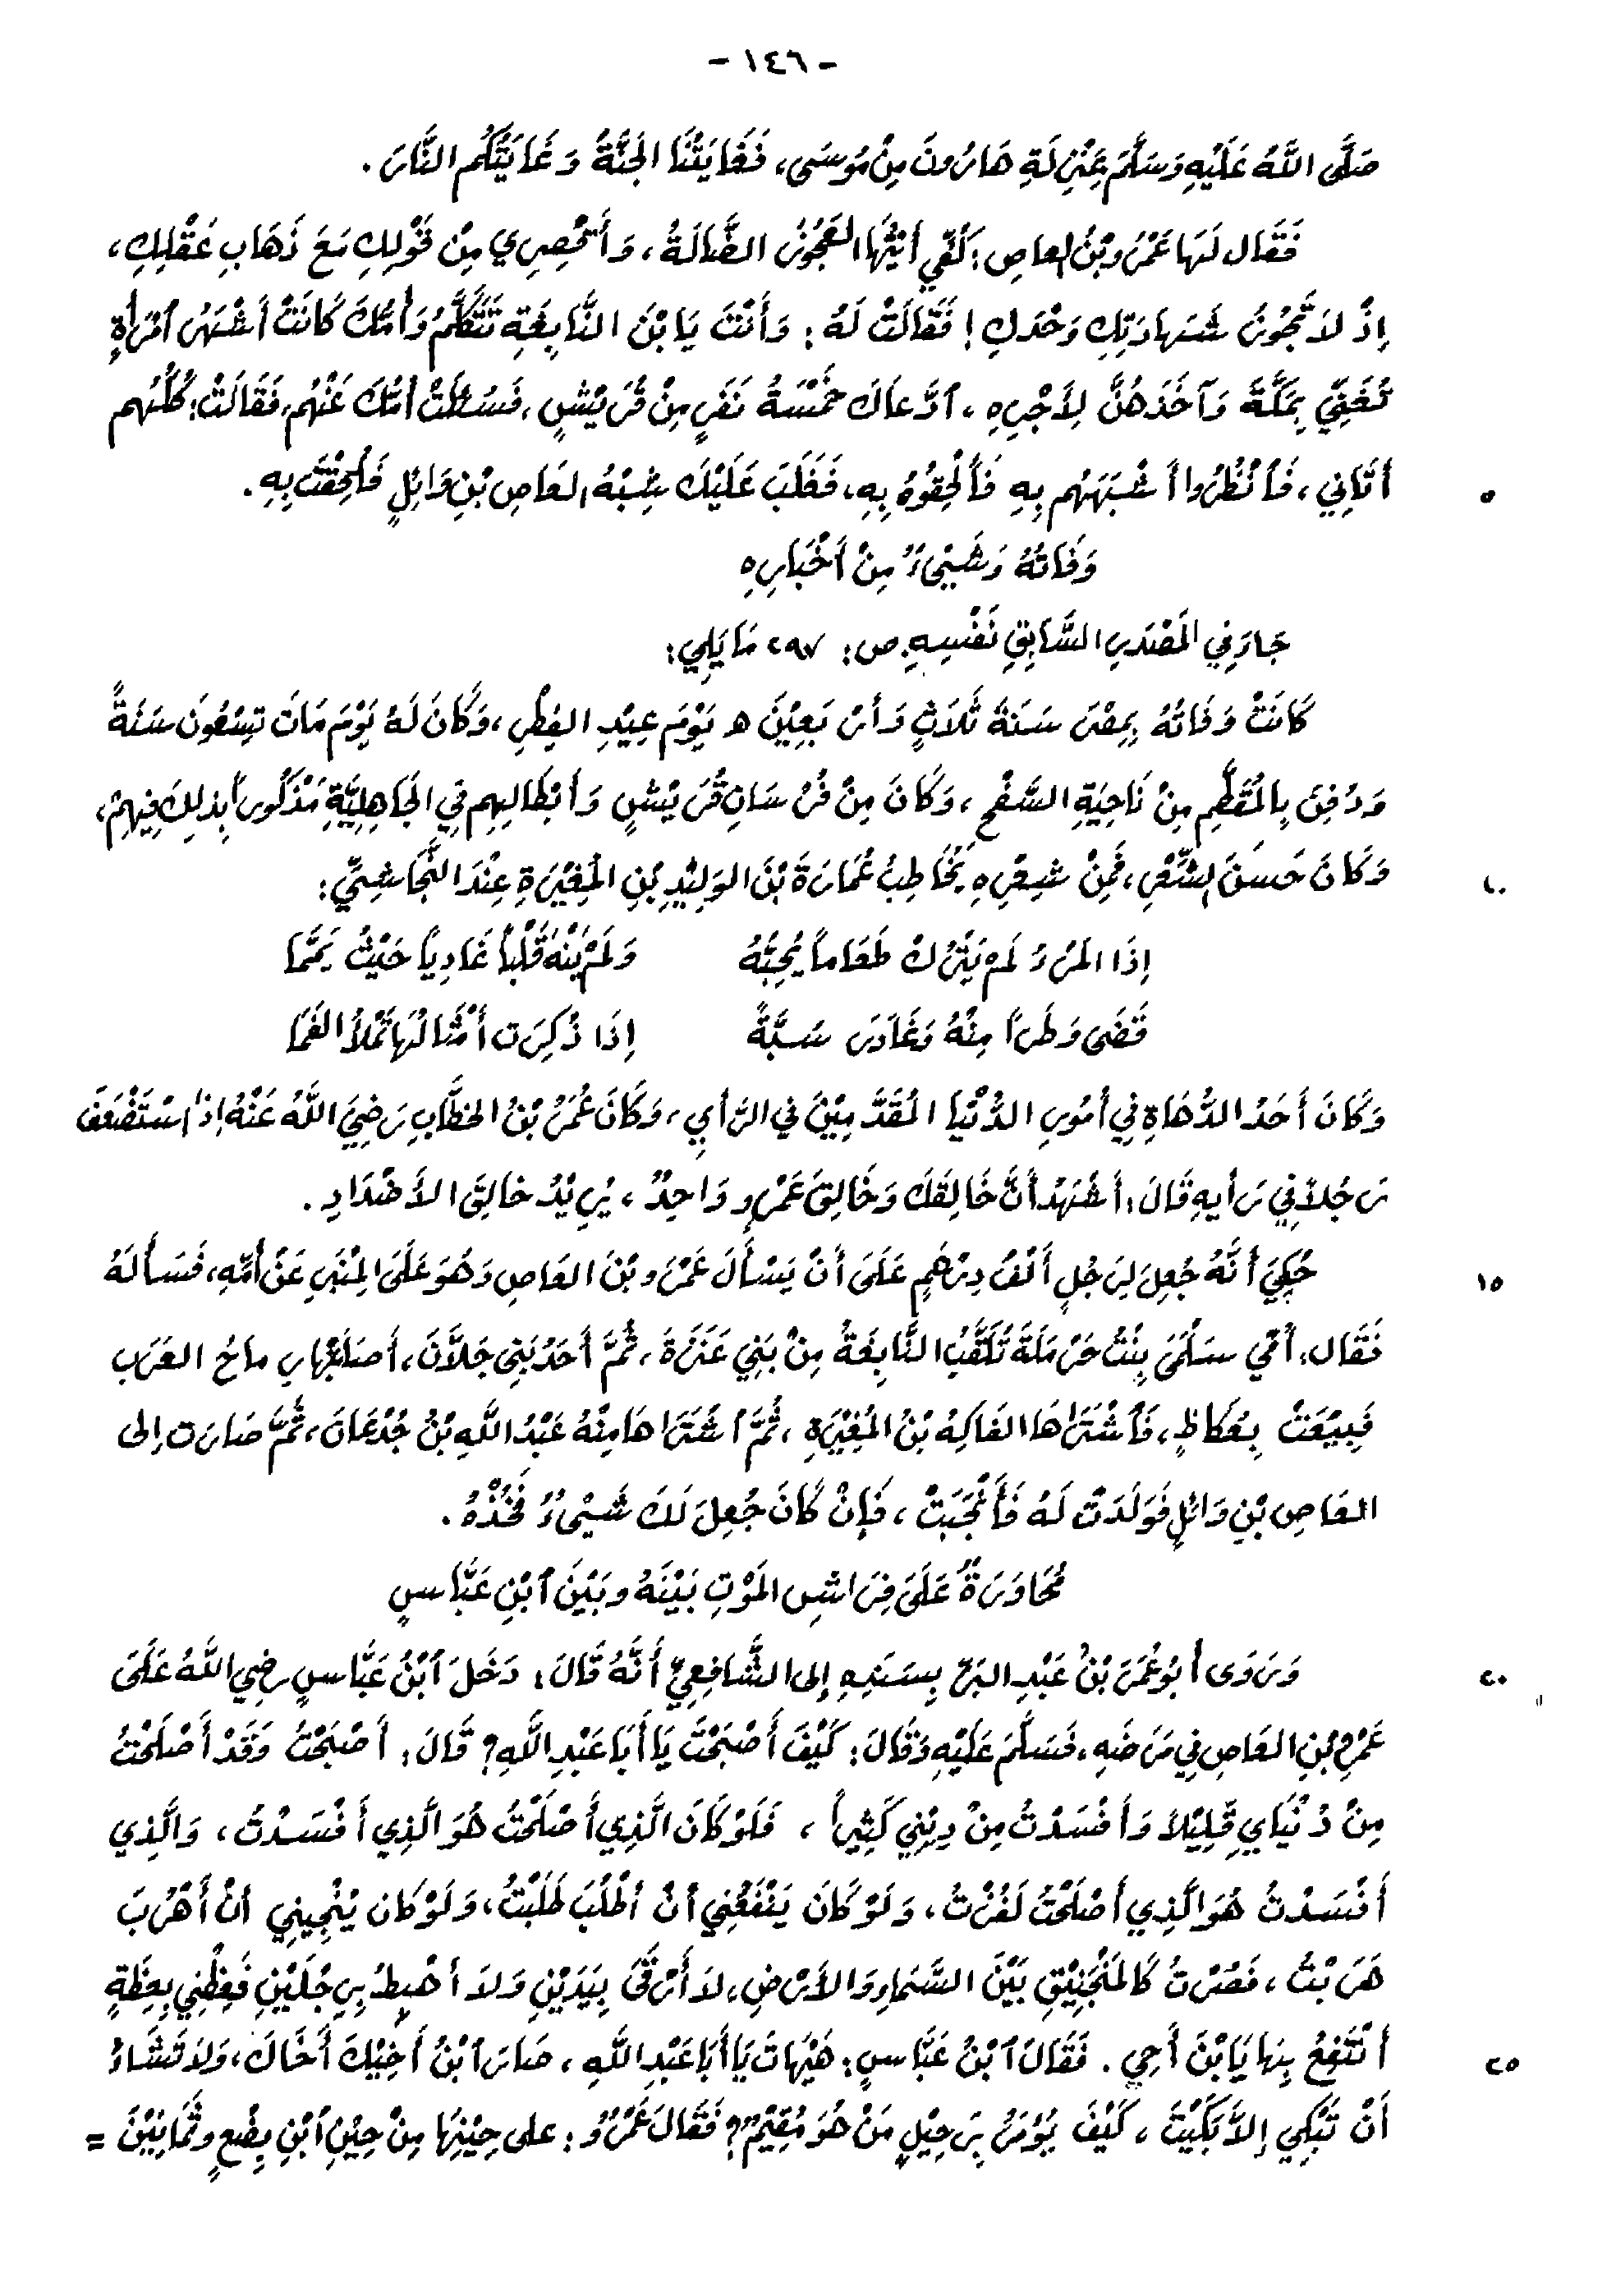 - ١٤٦ -
صَلَّى اللَّهُ عَلَيْهِ وَسَلَّمَ بِمَنْزِلَةِ هَارُونَ مِنْ مُوسَى، فَغَايَتُنَا الجَنَّةُ وَغَايَتُكُم النَّارُ.
فَقَال لَهَا عَمْرُو بْنُ العاصِ: كُفِّي أَيَّتُهَا العَجُوزُ الضَّالَّةُ، وَأَقْصِرِي مِنْ قَوْلِكِ مَعَ ذَهَابِ عَقْلِكِ،
إذْ لاَ تَجُوزُ شَهادَتِكِ وَحْدَكِ! فَقَالَتْ لَهُ: وَأَنْتَ يَا بْنَ النَّابِغَةِ تَتَكَلَّمُ وَأُمُّكَ كَانَتْ أَشْهَرَ ٱمْرَأةٍ
تُغَنِّي بِمَكَّةَ وَآخَذَهُنَّ لِأَجْرِهِ، ٱدَّعَاكَ خَمْسَةُ نَفَرٍ مِنْ قُرَيْشٍ، فَسُئِلَتْ أُمُّكَ عَنْهُم، فَقَالَتْ: كُلُّهُم
أَتَانِي، فَٱنْظُرُوا أَشْبَهَهُم بِهِ فَأَلْحِقُوهُ بِهِ، فَغَلَبَ عَلَيْكَ شِبْهُ العَاصِ بْنِ وَائِلٍ فَلُحِقْتَ بِهِ. ٥
وَفَاتُهُ وَشَيْءٌ مِنْ أَخْبَارِهِ
جَاءَ فِي المَصْدَرِ السَّابِقِ نَفْسِهِ. ص: ٢٩٧ مَا يَلِي:
كَانَتْ وَفَاتُهُ بِمِصْرَ سَنَةَ ثَلاَثٍ وَأَرْبَعِيْنَ هـ يَوْمَ عِيْدِ الفِطْرِ، وَكَانَ لَهُ يَوْمَ مَاتَ تِسْعُونَ سَنَةً
وَدُفِنَ بِالمُقَطَّمِ مِنْ نَاحِيَةِ السَّفْحِ، وَكَانَ مِنْ فُرْسَانِ قُرَيْشٍ وَأَبْطَالِهِم فِي الجَاهِلِيَّةِ مَذْكُوراً بِذَلِكَ فِيهِمْ،
وَكَانَ حَسَنَ الشِّعْرِ، فَمِنْ شِعْرِهِ يُخَاطِبُ عُمَارَةَ بْنَ الوَلِيْدِ بْنِ المُغِيْرَةِ عِنْدَ النَّجَاشِيِّ: ١٠
إذَا المَرْءُ لَمْ يَتْرُكْ طَعَاماً يُحِبُّهُ وَلَمْ يَنْهَ قَلْباً غَاوِياً حَيْثُ يَمَّمَا
قَضَى وَطَراً مِنْهُ وَغَادَرَ سُبَّةً إذَا ذُكِرَت أَمْثَالُهَا تَمْلأُ الفَمَا
وَكَانَ أَحَدَ الدُّهَاةِ فِي أُمُورِ الدُّنْيَا المُقَدَّمِيْنَ فِي الرَّأيِ، وَكَانَ عُمَرُ بْنُ الخطَّابِ رَضِيَ اللَّهُ عَنْهُ إذَا ٱسْتَضْعَفَ
رَجُلاً فِي رَأيِهِ قَالَ: أَشْهَدُ أَنَّ خَالِقَكَ وَخَالِقَ عَمْرٍو وَاحِدٌ، يُرِيْدُ خالِقَ الأَضْدَادِ.
حُكِيَ أَنَّهُ جُعِلَ لِرَجُلٍ أَلْفُ دِرْهَمٍ عَلَى أَنْ يَسْأَلَ عَمْرَو بْنَ العَاصِ وَهُوَ عَلَى المِنْبَرِ عَنْ أُمِّهِ، فَسَأَلَهُ ١٥
فَقَال: أُمِّي سَلْمَى بِنْتُ حَرْمَلَةَ تُلَقَّبُ النَّابِغَةُ مِنْ بَنِي عَنَزَةَ، ثُمَّ أَحَدُ بَنِي جَلَّانَ، أَصَابَتْهَا رِمَاحُ العَرَب
فَبِيْعَتْ بِعُكَاظٍ، فَٱشْتَرَاهَا الفَاكِهُ بْنُ المُغِيْرَةِ، ثُمَّ ٱشْتَرَاهَا مِنْهُ عَبْدُ اللَّهِ بْنُ جُدْعَانَ، ثُمَّ صَارَت إلى
العَاصِ بْنِ وَائِلٍ فَوَلَدَتْ لَهُ فَأَنْجَبَتْ، فَإنْ كَانَ جُعِلَ لَكَ شَيْءٌ فَخُذْهُ.
مُحَاوَرَةٌ عَلَى فِرَاشِ المَوْتِ بَيْنَهُ وبَيْنَ ٱبْنِ عَبَّاسٍ
وَرَوَى أبُو عُمَرَ بْنُ عَبْدِ البَرِّ بِسَنَدِهِ إلى الشَّافِعِيِّ أَنَّهُ قَالَ: دَخَلَ ٱبْنُ عَبَّاسٍ رضي اللَّهُ عَلَى ٢٠
عَمْرِو بْنِ العَاصِ فِي مَرَضِهِ، فَسَلَّمَ عَلَيْهِ وَقَالَ: كَيْفَ أَصْبَحْتَ يَا أَبَا عَبْدِ اللَّهِ؟ قَالَ: أَصْبَحْتُ وَقَدْ أَصْلَحْتُ
مِنْ دُنْيَايَ قَلِيْلاً وَأَفْسَدْتُ مِنْ دِيْنِي كَثِيْراً، فَلَوْ كَانَ الَّذِي أَصْلَحْتُ هُوَ الَّذِي أَفْسَدْتُ، وَالَّذِي
أَفْسَدْتُ هُوَ الَّذِي أَصْلَحْتُ لَفُزْتُ، وَلَوْ كَانَ يَنْفَعُنِي أنْ أَطْلُبَ لَطَلَبْتُ، وَلَوْ كان يُنْجِينِي أنْ أَهْرُبَ
هَرَبْتُ، فَصُرْتُ كَالمَنْجَنِيْقِ بَيْنَ السَّمَاءِ وَالأَرْضِ، لاَ أَرْقَى بِيَدَيْنِ وَلاَ أَهْبِطُ بِرِجْلَيْنِ فَعِظْنِي بِعِظَةٍ
أَنْتَفِعُ بِهَا يَا بْنَ أَخِي. فَقَالَ ٱبْنُ عَبَّاسٍ: هَيْهَاتَ يَا أَبَا عَبْدِ اللَّهِ، صَارَ ٱبْنُ أَخِيْكَ أَخَاكَ، وَلاَ تَشَاءُ ٢٥
أَنْ تَبْكِي إلاَّ بَكَيْتَ، كَيْفَ يُؤمَرُ بِرَحِيْلٍ مَنْ هُوَ مُقِيْمٌ؟ فَقَالَ عَمْرٌو: على حِيْنِهَا مِنْ حِيْنِ ٱبْنِ بِضْعٍ وثَمَانِيْنَ =